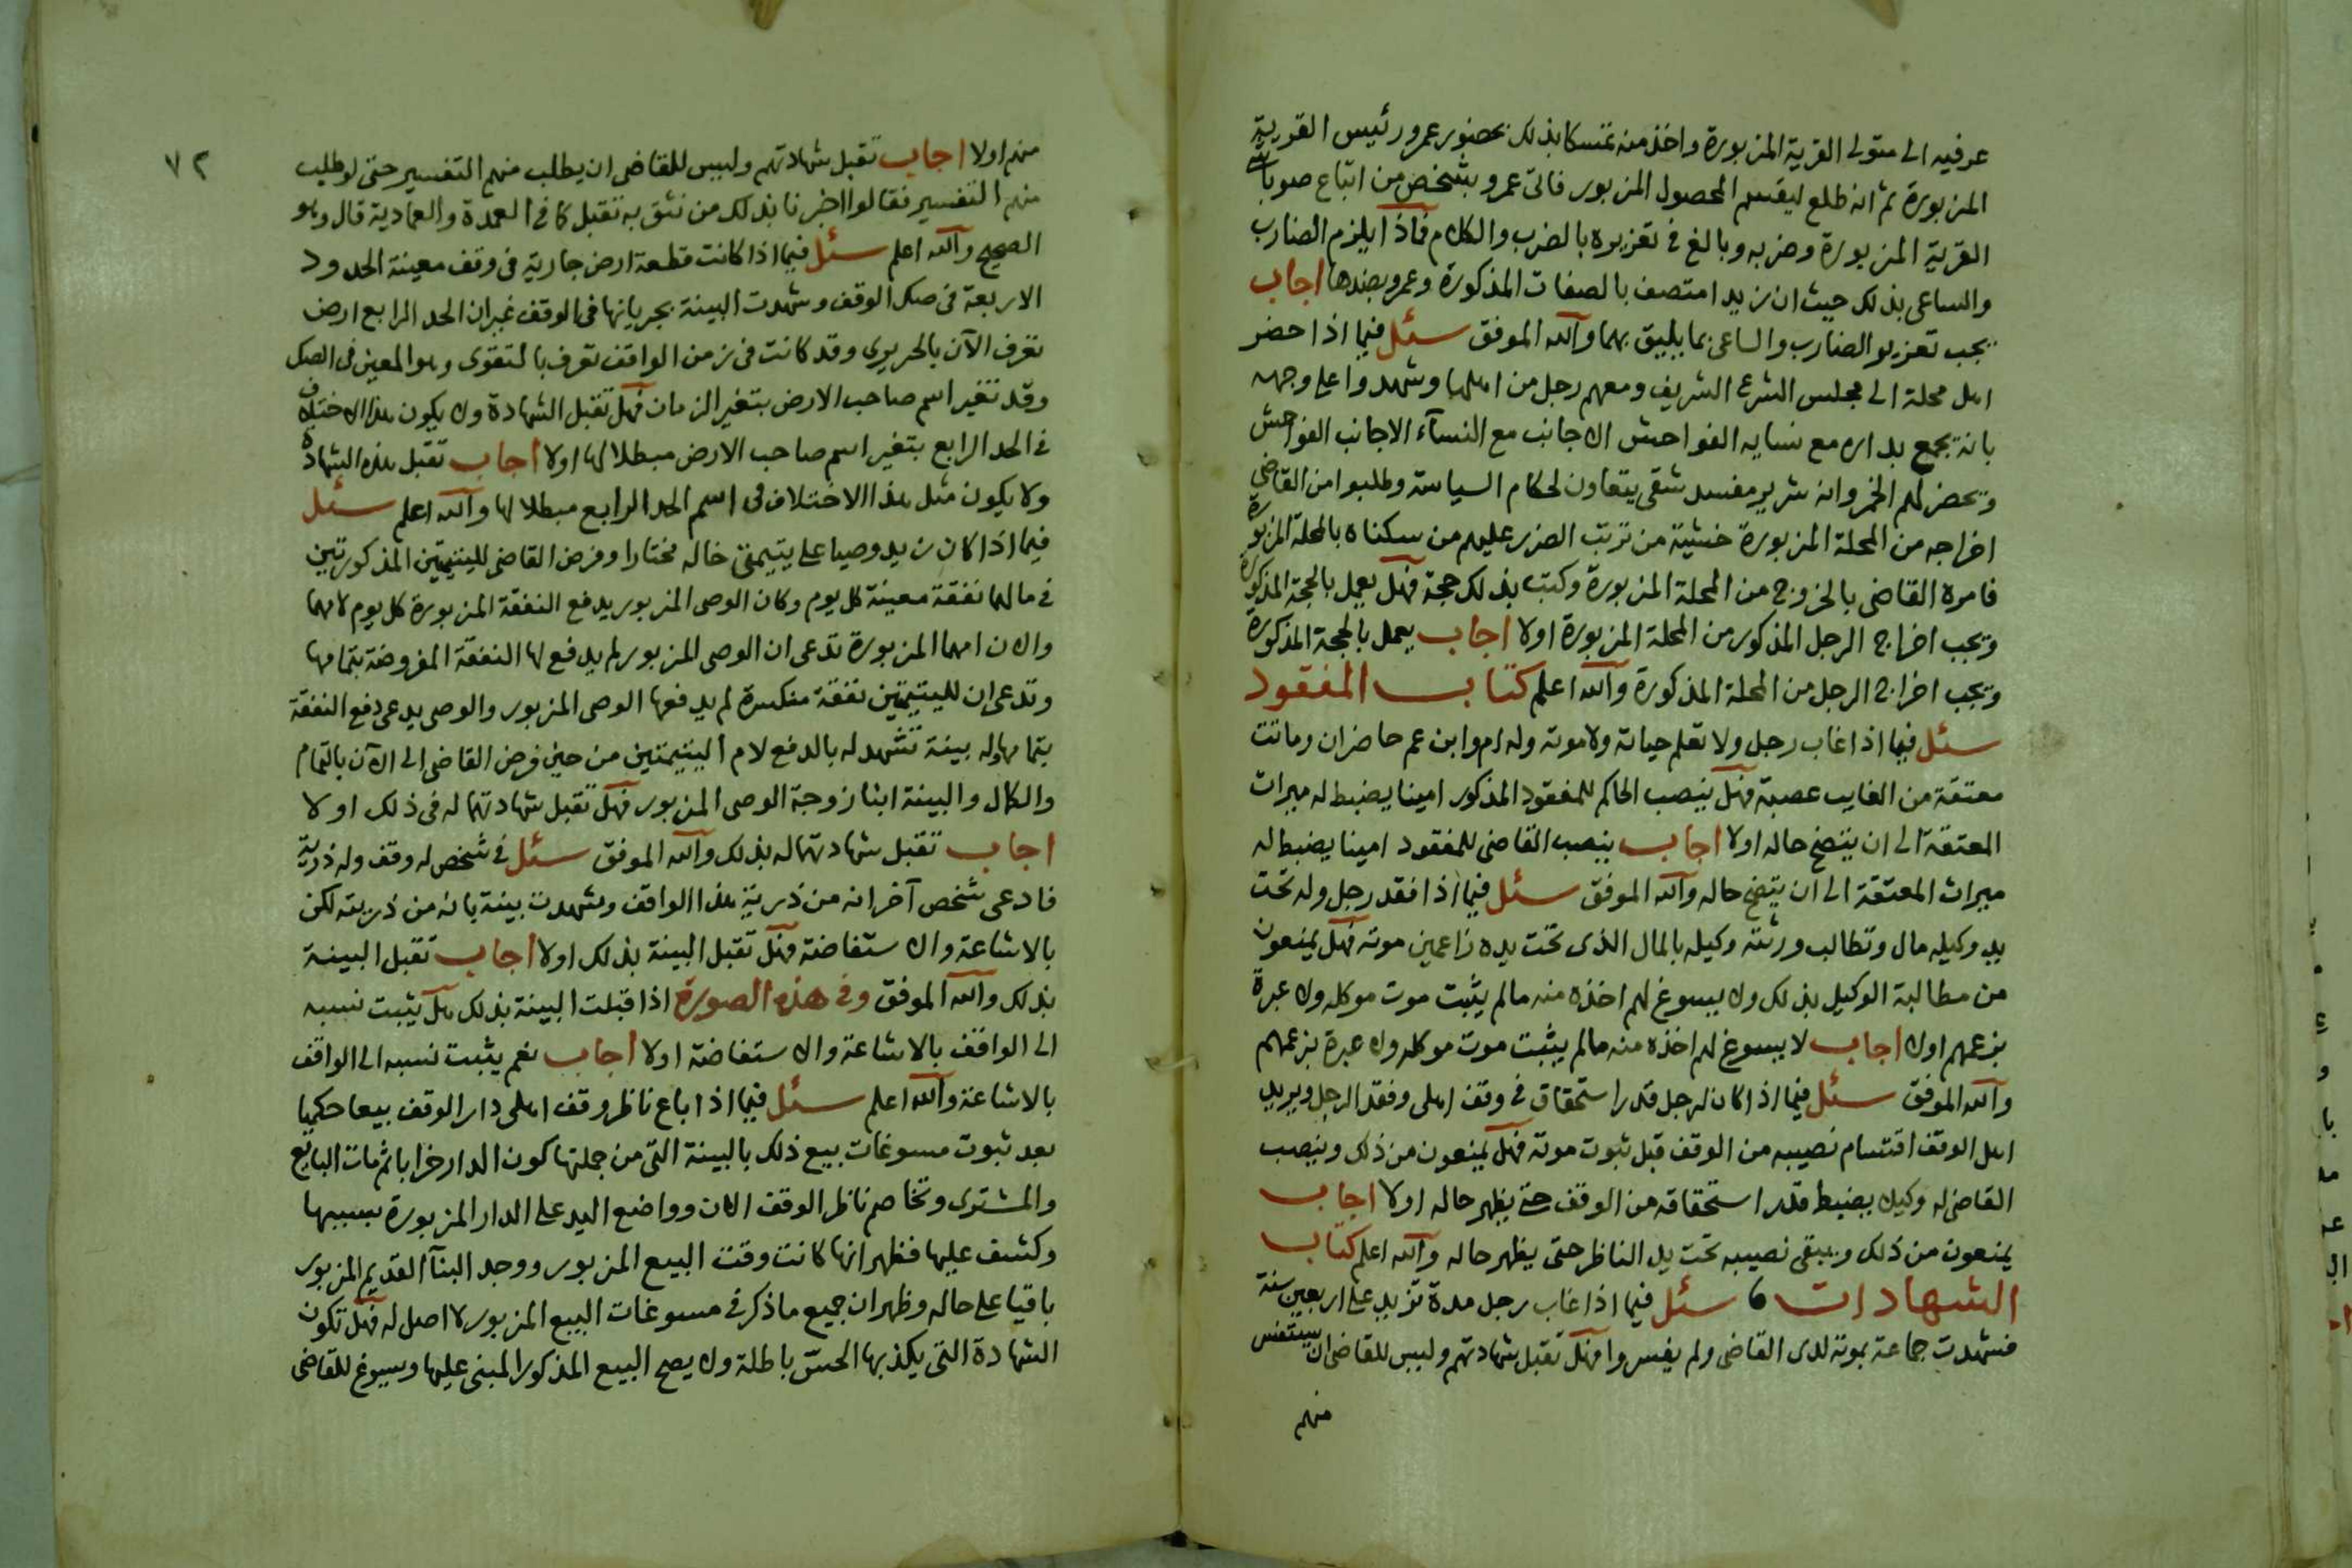 عرفيه الى متولى القرية المزبورة واخذ منه تمسكا بذلك بحضور عمرو رئيس القرية
المزبورة ثم انه طلع ليقسم المحصول المزبور فاتى عمرو بشخص من اتباع صوباشى
القرية المزبورة وضربه وبالغ فى تعزيره بالضرب والكلام فماذا يلزم الضارب
والساعى بذلك حيث ان زيدا متصف بالصفات المذكورة وعمرو بضدها اجاب
يجب تعزير الضارب والساعى بما يليق بهما والله الموفق سئل فيما اذا حضر
اهل محلة الى مجلس الشرع الشريف ومعهم رجل من اهلها وشهدوا على وجهه
بانه يجمع بداره مع نسايه الفواحش الاجانب مع النسآء الاجانب الفواحش
ويحضر لهم الخمر وانه شرير مفسد شقى يتعاون لحكام السياسة وطلبوا من القاضى
اخراجه من المحلة المزبورة خشية من ترتب الضرر عليهم من سكناه بالمحلة المزبورة
فامره القاضى بالخروج من المحلة المزبورة وكتب بذلك حجة فهل يعمل بالحجة المذكورة
ويجب اخراج الرجل المذكور من المحلة المزبورة اولا اجاب يعمل بالحجة المذكورة
ويجب اخراج الرجل من المحلة المذكورة والله اعلم كتاب المفقود
سئل فيما اذا غاب رجل ولا تعلم حياته ولا موته وله ام وابن عم حاضران وماتت
معتقة من الغايب عصبة فهل ينصب الحاكم للمفقود المذكور امينا يضبط له ميراث
المعتقة الى ان يتضح حاله اولا اجاب ينصب القاضى للمفقود امينا يضبط له
ميراث المعتقة الى ان يتضح حاله والله الموفق سئل فيما اذا فقد رجل وله تحت
يد وكيله مال وتطالب ورثته وكيله بالمال الذى تحت يده زاعمين موته فهل يمنعون
من مطالبة الوكيل بذلك ولا يسوغ لهم اخذه منه مالم يثبت موت موكله ولا عبرة
بزعمهم اولا اجاب لا يسوغ لهم اخذه منه مالم يثبت موت موكله ولا عبرة بزعمهم
والله الموفق سئل فيما اذا كان لرجل قدر استحقاق فى وقف اهلى وفقد الرجل ويريد
اهل الوقف اقتسام نصيبه من الوقف قبل ثبوت موته فهل يمنعون من ذلك وينصب
القاضى له وكيلا يضبط قدر استحقاقه من الوقف حتى يظهر حاله اولا اجاب
يمنعون من ذلك ويبقى نصيبه تحت يد الناظر حتى يظهر حاله والله اعلم كتاب
الشهادات سئل فيما اذا غاب رجل مدة تزيد على اربعين سنة
فشهدت جماعة بموته لدى القاضى ولم يفسروا فهل تقبل شهادتهم وليس للقاضى ان يستفسر
منهم
٧٢
منهم اولا اجاب تقبل شهادتهم وليس للقاضى ان يطلب منهم التفسير حتى لو طلب
منهم التفسير فقالوا اخبرنا بذلك من نثق به تقبل كما فى العمدة والعمادية قال وهو
الصحيح والله اعلم سئل فيما اذا كانت قطعة ارض جارية فى وقف معينة الحدود
الاربعة فى صك الوقف وشهدت البينة بجريانها فى الوقف غير ان الحد الرابع ارض
تعرف الآن بالحريرى وقد كانت فى زمن الواقف تعرف بالتقوى وهو المعين فى الصك
وقد تغير اسم صاحب الارض بتغير الزمان فهل تقبل الشهادة ولا يكون هذا الاختلاف
فى الحد الرابع بتغير اسم صاحب الارض مبطلا لها اولا اجاب تقبل هذه الشهادة
ولا يكون مثل هذا الاختلاف فى اسم الحد الرابع مبطلا لها والله اعلم سئل
فيما اذا كان زيد وصيا على يتيمتى خاله مختارا وفرض القاضى لليتيمتين المذكورتين
فى مالهما نفقة معينة كل يوم وكان الوصى المزبور يدفع النفقة المزبورة كل يوم لامهما
والان امهما المزبورة تدعى ان الوصى المزبور لم يدفع لها النفقة المفروضة بتمامها
وتدعى ان لليتيمتين نفقة منكسرة لم يدفعها الوصى المزبور والوصى يدعى دفع النفقة
بتمامها وله بينة تشهد له بالدفع لام اليتيمتين من حين فرض القاضى الى الآن بالتمام
والكمال والبينة ابنا زوجة الوصى المزبور فهل تقبل شهادتهما له فى ذلك اولا
اجاب تقبل شهادتهما له بذلك والله الموفق سئل فى شخص له وقف وله ذرية
فادعى شخص آخر انه من ذرية هذا الواقف وشهدت بينة بانه من ذريته لكن
بالاشاعة والاستفاضة فهل تقبل البينة بذلك اولا اجاب تقبل البينة
بذلك والله الموفق وفى هذه الصورة اذا قبلت البينة بذلك هل يثبت نسبه
الى الواقف بالاشاعة والاستفاضة اولا اجاب نعم يثبت نسبه الى الواقف
بالاشاعة والله اعلم سئل فيما اذا باع ناظر وقف اهلى دار الوقف بيعا حكميا
بعد ثبوت مسوغات بيع ذلك بالبينة التى من جملتها كون الدار خرابا ثم مات البايع
والمشترى وتخاصم ناظر الوقف الان وواضع اليد على الدار المزبورة بسببها
وكشف عليها فظهر انها كانت وقت البيع المزبور ووجد البنآ القديم المزبور
باقيا على حاله وظهر ان جميع ما ذكر فى مسوغات البيع المزبور لا اصل له فهل تكون
الشهادة التى يكذبها الحس باطلة ولا يصح البيع المذكور المبنى عليها ويسوغ للقاضى